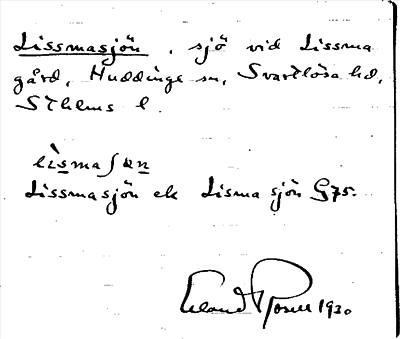 Lissmasjön, sjö vid Lissma
gård, Huddinge sn, Svartlösa hd,
Sthlms l.
lìsmaʃøn
Lissmasjön ek Lisma sjön G75.
Erland Rosell 1930